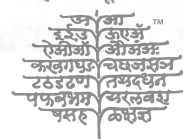 अ आ ™
इईउ
कखगघङ चछजझञ
टठडढण तथदधन
पफबभम यरलवश
षसह ळक्षज्ञ